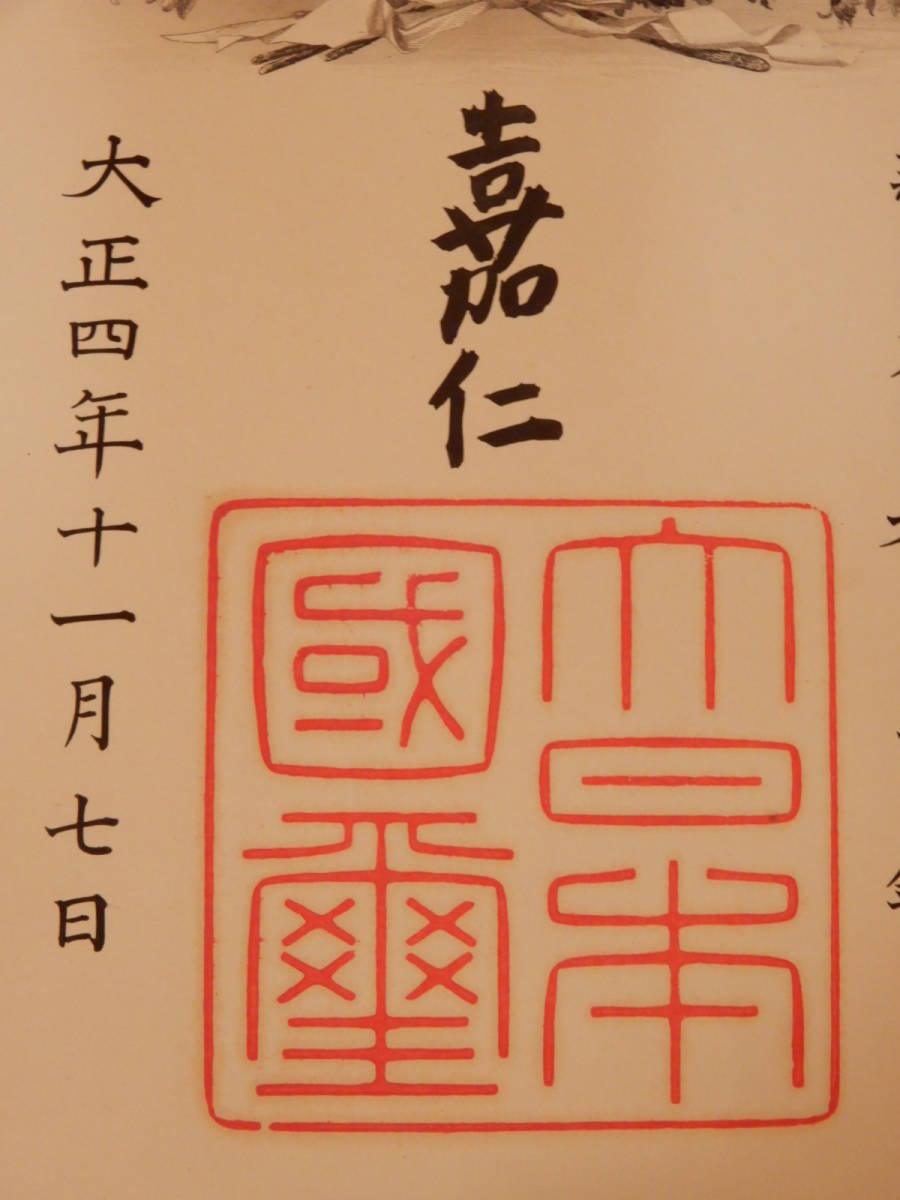 嘉仁
大日本
國璽
大正四年十一月七日